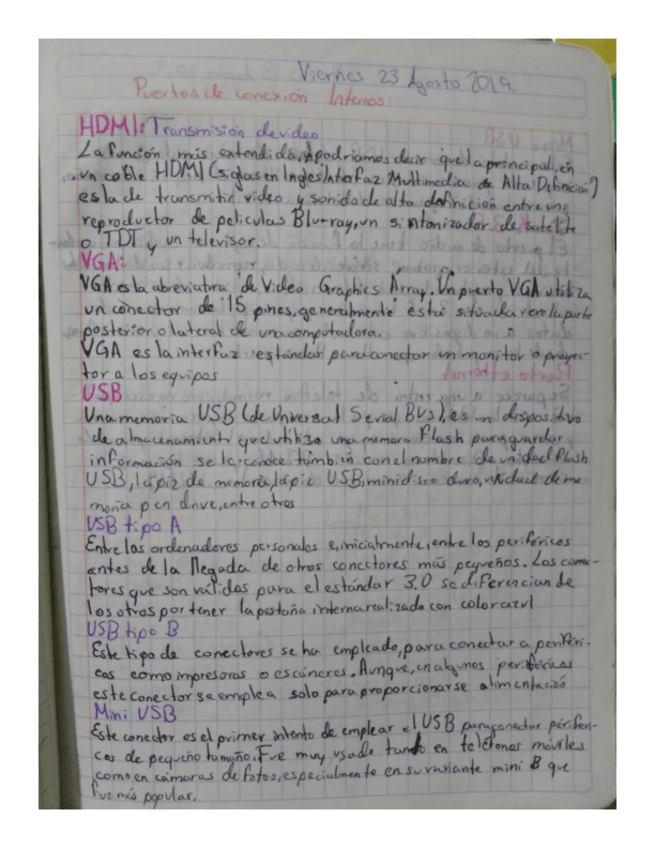 Viernes 23 Agosto 2019.
Puertos de conexión Internos
HDMI: Transmisión de video
La función más extendida, podríamos decir que la principal, en
un cable HDMI (siglas en Ingles Interfaz Multimedia de Alta Definición)
es la de transmitir video y sonido de alta definición entre un
reproductor de peliculas Blu-ray, un sintonizador de satelite
o TDT y un televisor.
VGA:
VGA es la abreviatura de Video Graphics Array. Un puerto VGA utiliza
un conector de 15 pines, generalmente está situada en la parte
posterior o lateral de una computadora.
VGA es la interfaz estándar para conector un monitor o proyec-
tor a los equipos
USB
Una memoria USB (de Universal Serial Bus), es un dispositivo
de almacenamiento que utiliza una memoria Flash para guardar
información se le conoce también con el nombre de unidad flash
USB, lápiz de memoria, lápiz USB, minidisco duro, unidad de me-
moria pen drive, entre otros
USB tipo A
Entre los ordenadores personales e, inicialmente, entre los periféricos
antes de la llegada de otros conectores más pequeños. Los conec-
tores que son válidos para el estándar 3.0 se diferencian de
los otros por tener la pestaña interna realizada con color azul
USB tipo B
Este tipo de conectores se ha empleado, para conectar a periféri-
cos como impresoras o escáneres. Aunque, en algunos periféricos
este conector se emplea solo para proporcionarse alimentación
Mini USB
Este conector es el primer intento de emplear el USB para conectar periféri-
cos de pequeño tamaño. Fue muy usada tanto en teléfonos móviles
como en cámaras de fotos, especialmente en su variante mini B que
fue más popular.